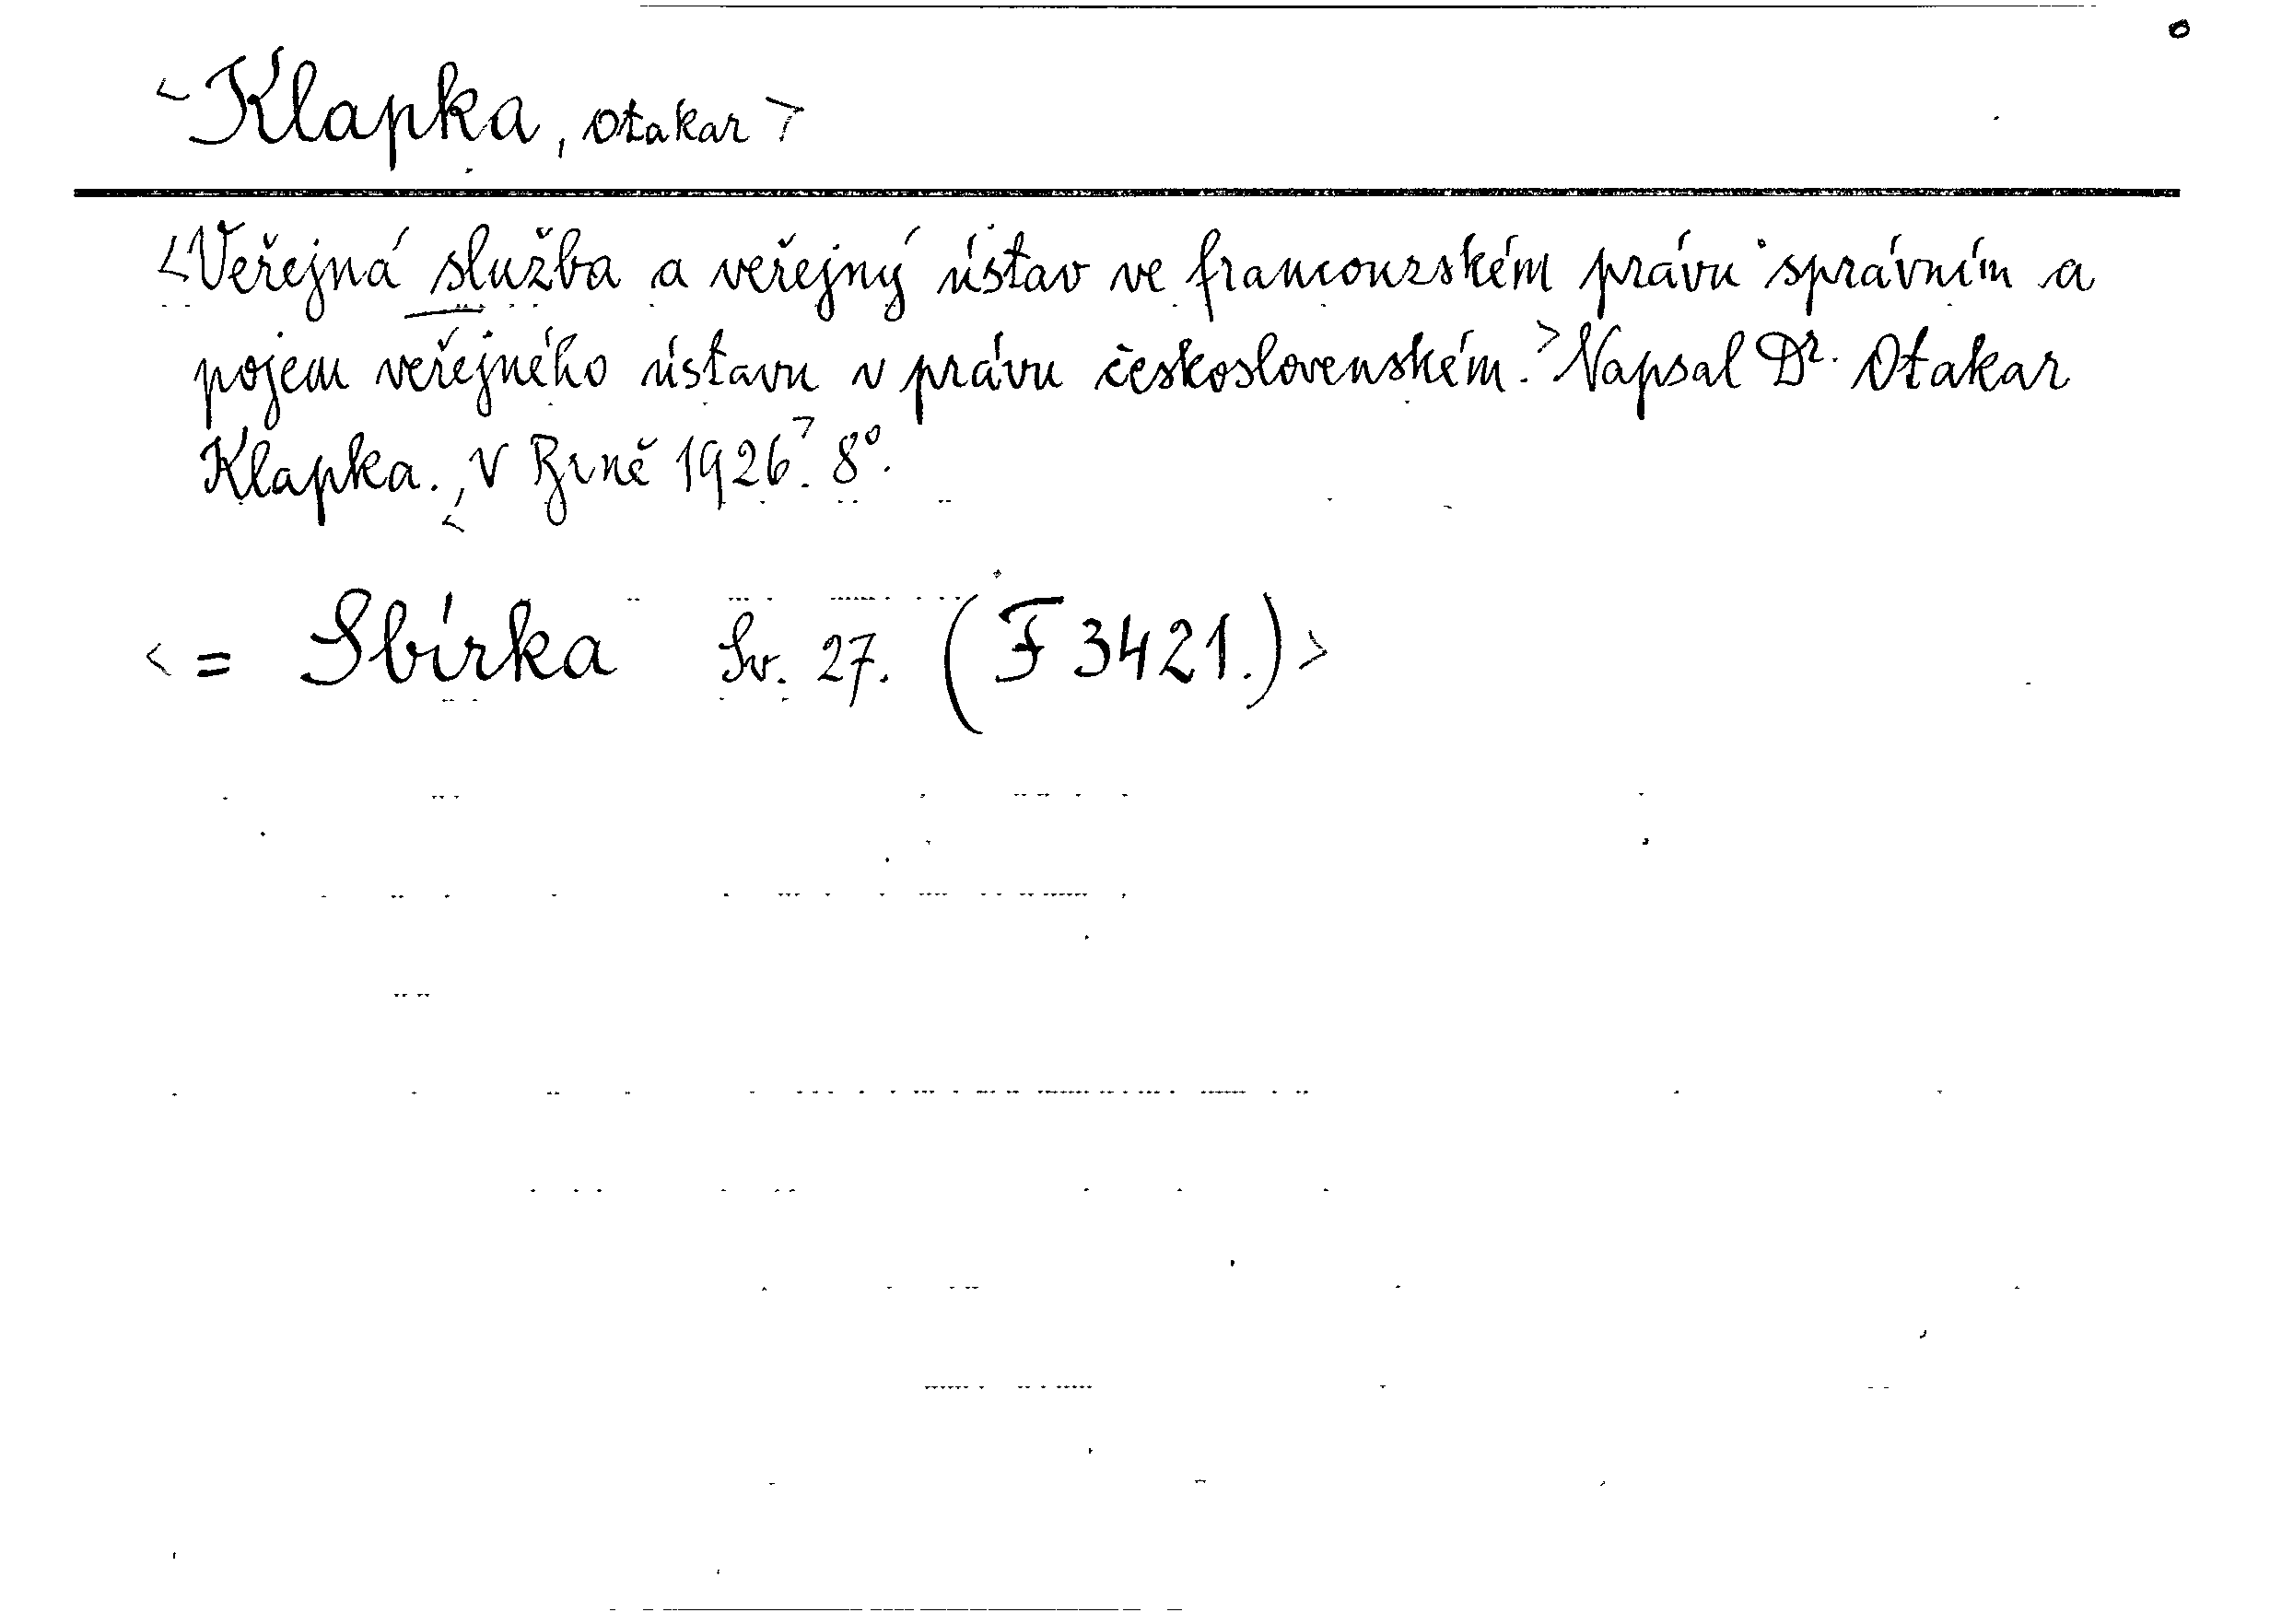 <Klapka, Otakar>
<Veřejná služba a veřejný ústav ve francouzském právu správním a
pojem veřejného ústavu v právu československém.> Napsal Dr. Otakar
Klapka. <V Brně 1926>. 8°.
<= Sbírka Sv. 27. (F 3421.)>